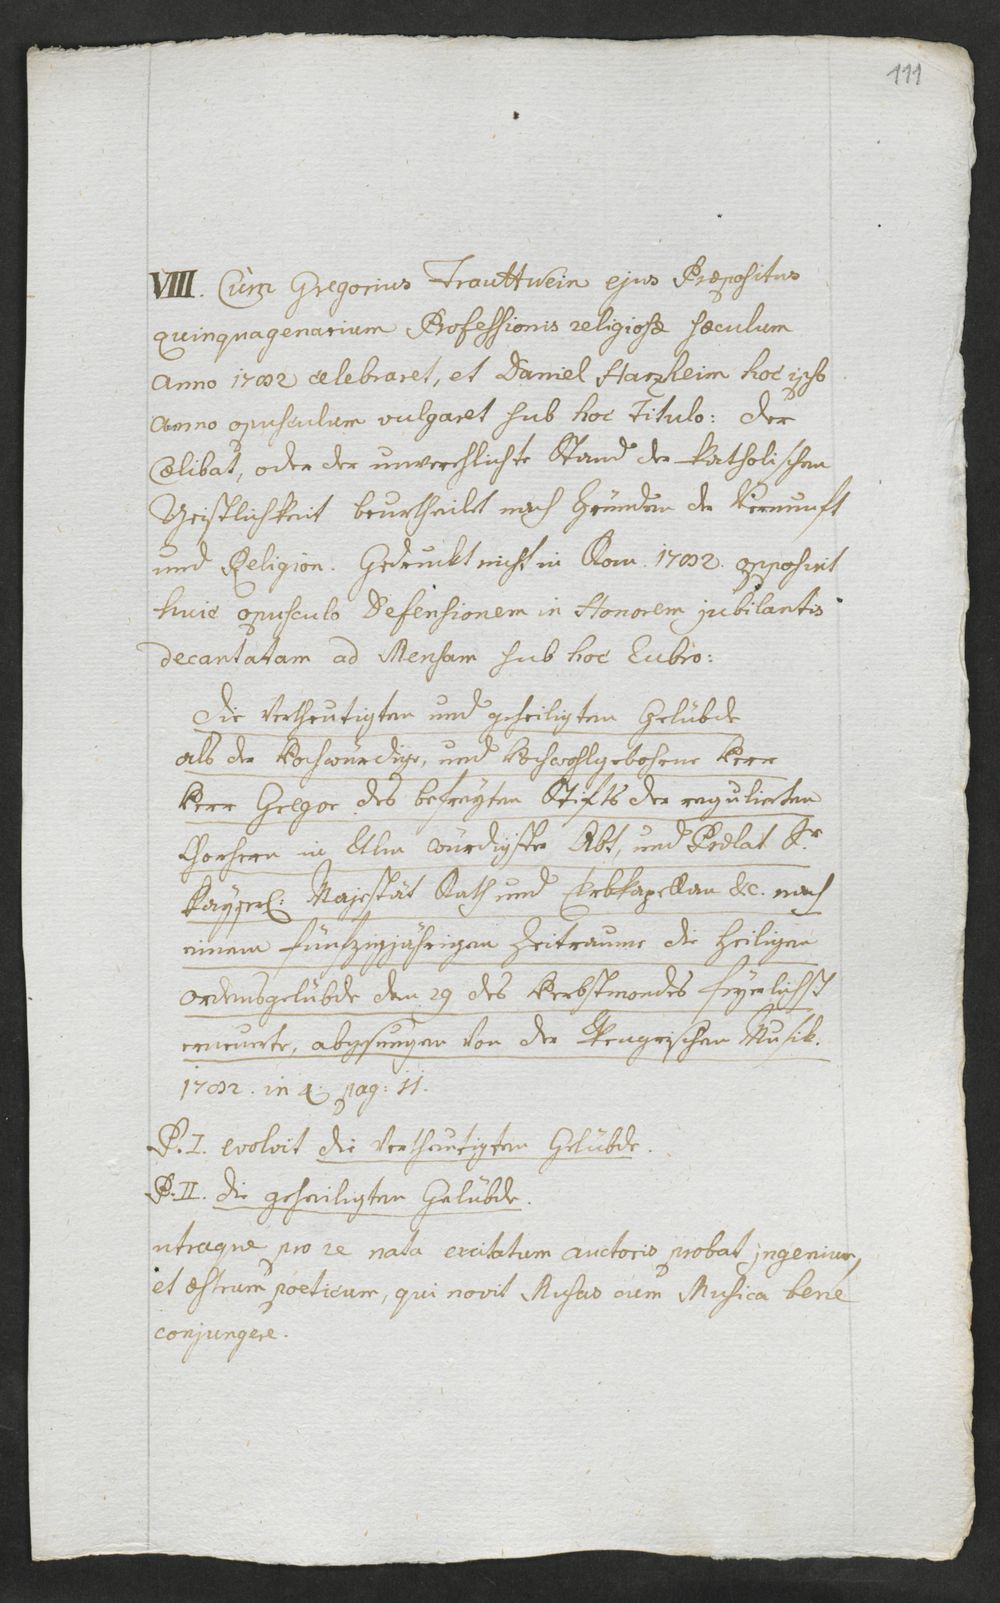 111
VIII. Cùm Gregorius Trauttwein ejus Præpositus
quinquagenarium Professionis religiosæ sæculum
Anno 1782 celebraret, et Daniel Harzheim hoc ipso
Anno opusculum vulgaret sub hoc Titulo: Der
Cœlibat, oder der unverehlichte Stand der katholischen
Geistlichkeit beurtheilet nach Gründen der Vernunft
und Religion. Gedruckt nicht in Rom. 1782. opposuit
huic opusculo Defensionem in Honorem jubilantis
decantatam ad Mensam sub hoc Lubro:
Die Vertheutigten und geheiligten Gelübde
als der Hochwürdige, und Hochwohlgebohrne Herr
Herr Gregor des befreyten Stifts der regulierten
Chorherrn in Ulm würdigster Abt, und Prælat Sr.
Kayserl: Majestät Rath und Erbkapellan &c. nach
einem fünfzigjährigen Zeitraume die heiligen
Ordensgelübde den 29 des Herbstmondes feyerlichst
erneuerte, abgesungen von der Wengischen Musik.
1782. in 4. pag: 11.
P. I. evolvit die Vertheutigten Gelübde.
P. II. die geheiligten Gelübde.
utraque pro re nata excitatum auctoris probat jngenium,
et œstrum poeticum, qui novit Musas cum Musica bene
conjungere.